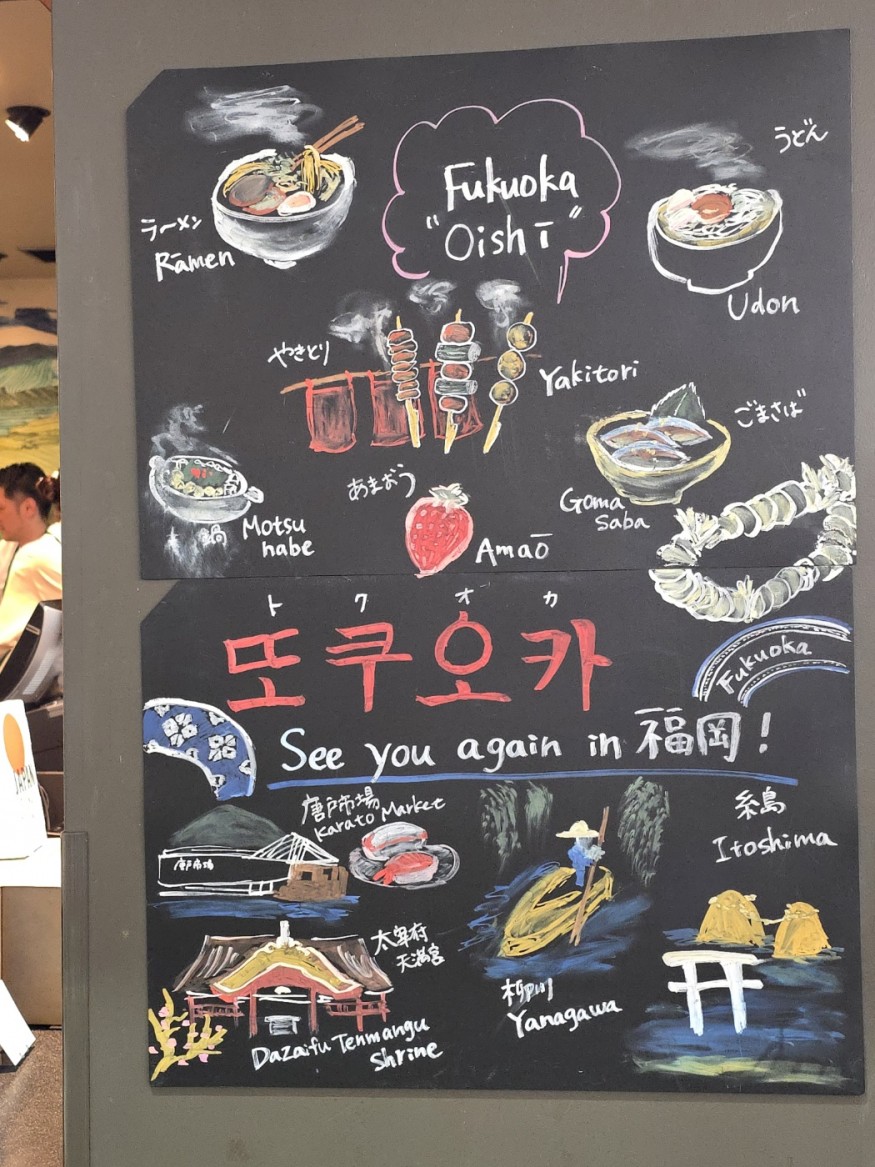 Fukuoka
"Oishī"
うどん
ラーメン
Rāmen
Udon
やきとり
Yakitori
ごまさば
Goma
saba
あまおう
Amaō
鍋
Motsu
nabe
トクオカ
또쿠오카
Fukuoka
See you again in 福岡!
唐戸市場
Karato Market
唐戸市場
糸島
Itoshima
太宰府
天満宮
Dazaifu Tenmangu
Shrine
柳川
Yanagawa
JAPAN